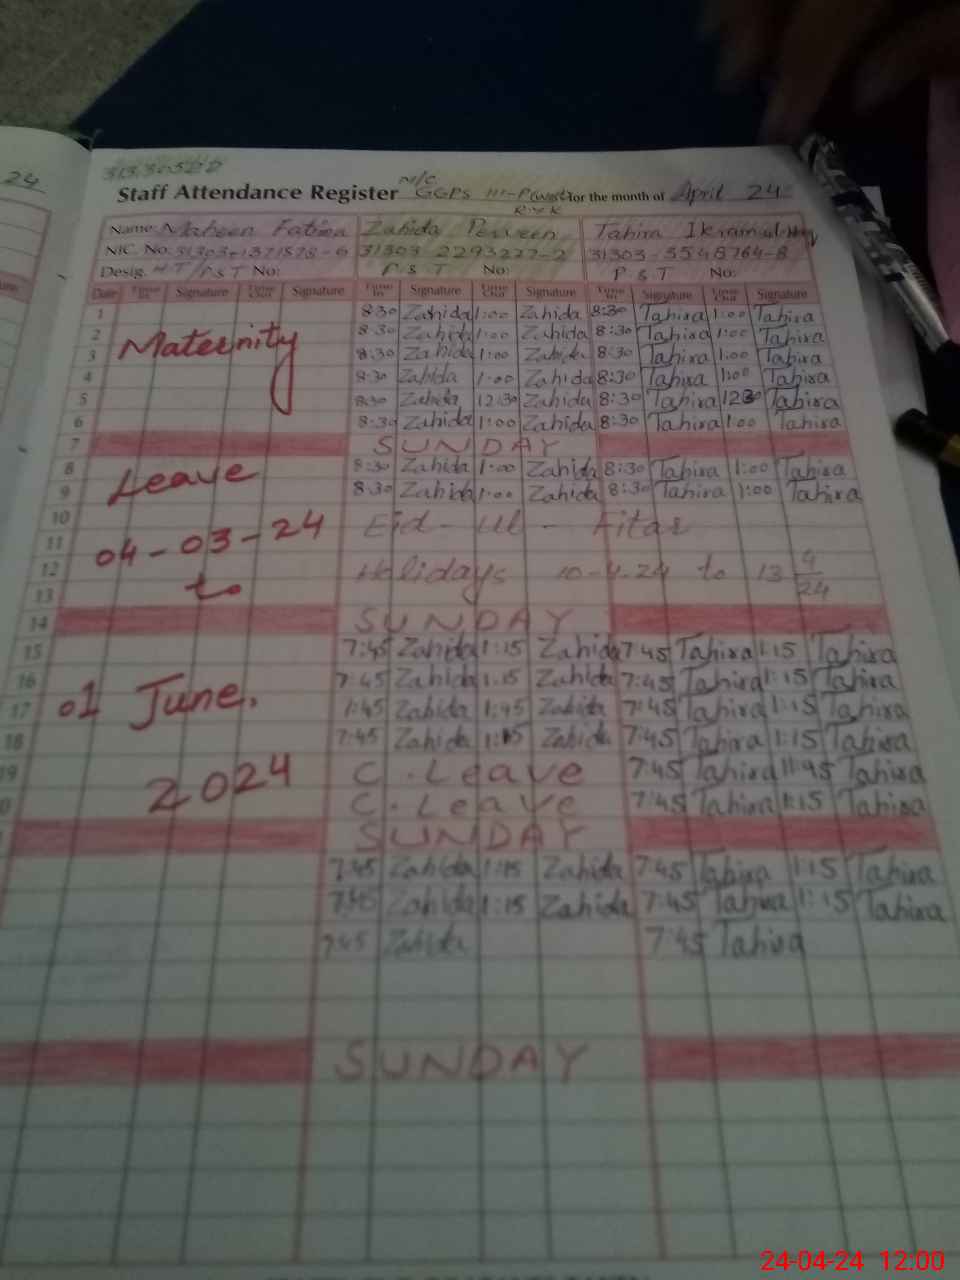 24
31330522
M/C
Staff Attendance Register GGPS for the month of April 24
R.Y.K
Name: Maheen Fatima Zahida Perveen Tahira Ikram
NIC. No: 31303 2293227-2 31303-5545764-8
Desig. HT/PST No: P.S.T No: P.S.T No:
Date Time In Signature Time Out Signature Time In Signature Time Out Signature Time In Signature Time Out Signature
1 8:30 Zahida 1:00 Zahida 8:30 Tahira 1:00 Tahira
2 8:30 Zahida 1:00 Zahida 8:30 Tahira 1:00 Tahira
Maternity
3 8:30 Zahida 1:00 Zahida 8:30 Tahira 1:00 Tahira
4 8:30 Zahida 1:00 Zahida 8:30 Tahira 1:00 Tahira
5 8:30 Zahida 12:30 Zahida 8:30 Tahira 12:30 Tahira
6 8:30 Zahida 1:00 Zahida 8:30 Tahira 1:00 Tahira
7 SUNDAY
8 Leave 8:30 Zahida 1:00 Zahida 8:30 Tahira 1:00 Tahira
9 8:30 Zahida 1:00 Zahida 8:30 Tahira 1:00 Tahira
10 Eid-Ul-Fitar
11 04-03-24
12 Holidays 10-4-24 to 13 4/24
13 to
14 SUNDAY
15 7:45 Zahida 1:15 Zahida 7:45 Tahira 1:15 Tahira
16 7:45 Zahida 1:15 Zahida 7:45 Tahira 1:15 Tahira
17 01 June. 1:45 Zahida 1:45 Zahida 7:45 Tahira 1:15 Tahira
18 7:45 Zahida 1:15 Zahida 7:45 Tahira 1:15 Tahira
19 2024 C.Leave 7:45 Tahira 11:45 Tahira
C.Leave 7:45 Tahira 1:15 Tahira
SUNDAY
7:45 Zahida 1:15 Zahida 7:45 Tahira 1:15 Tahira
7:45 Zahida 1:15 Zahida 7:45 Tahira 1:15 Tahira
7:45 Zahida 7:45 Tahira
SUNDAY
24-04-24 12:00